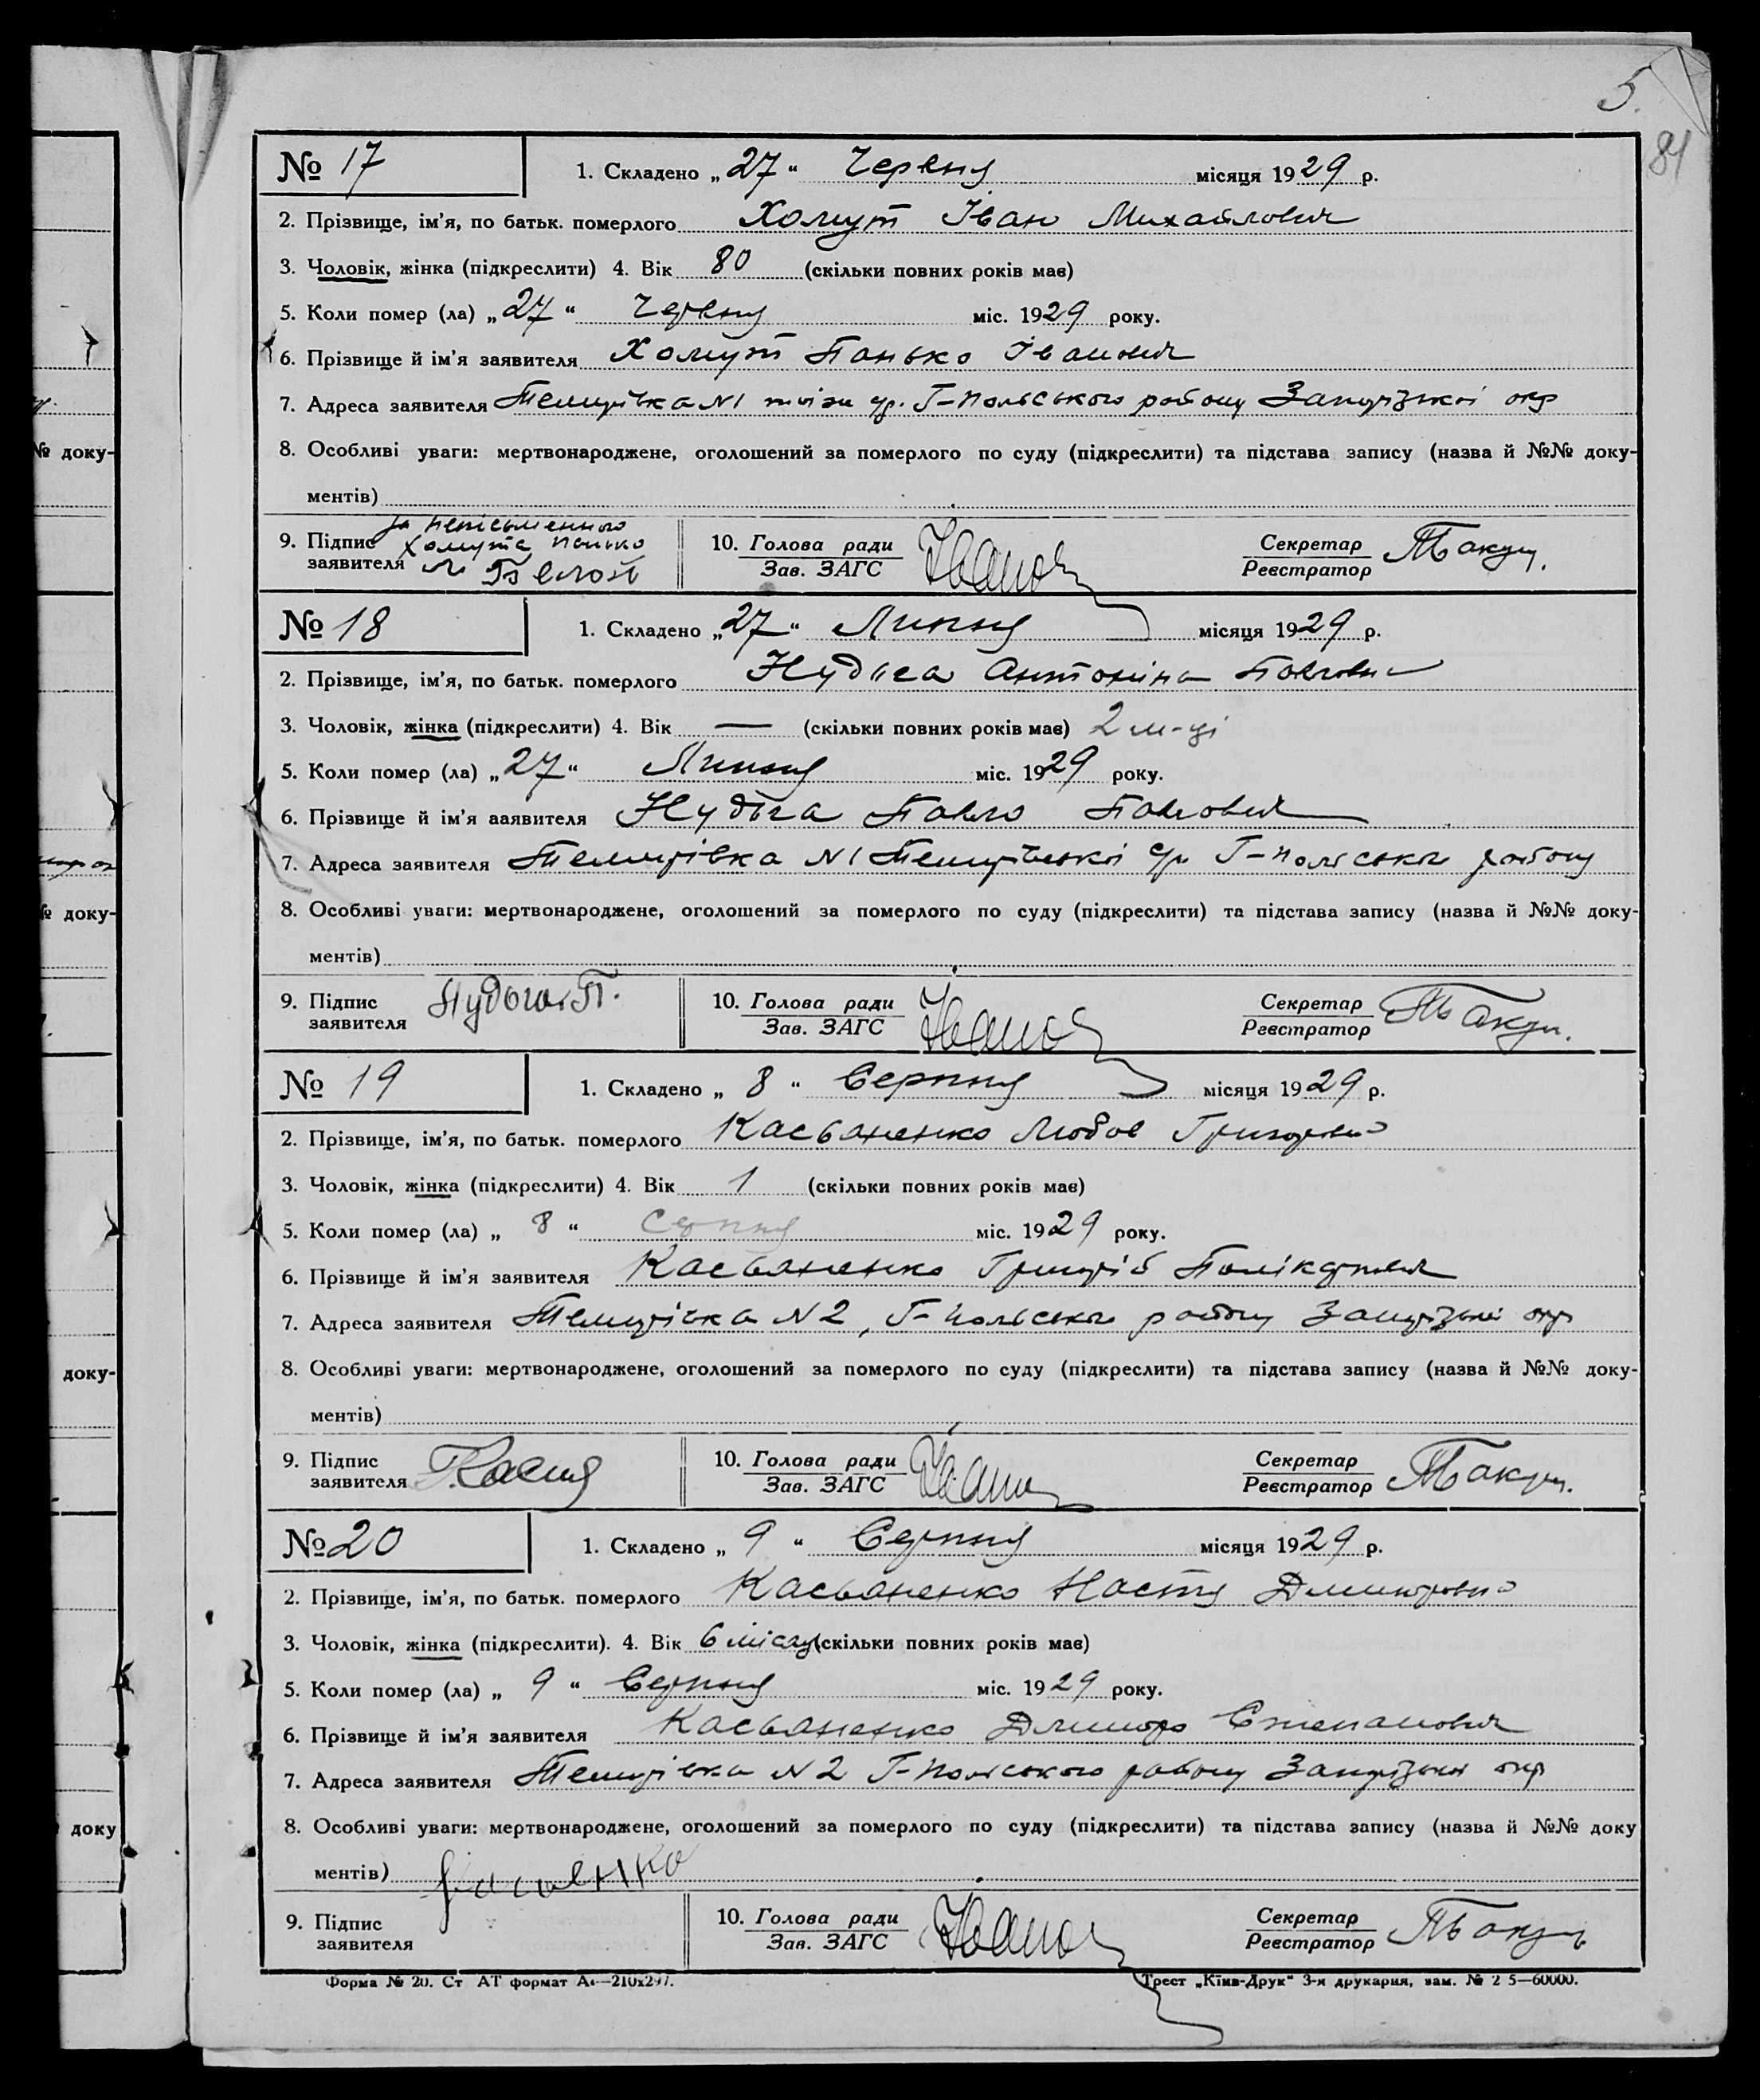 5.
84
№ 17 1. Складено „27“ Червня місяця 1929 р.
2. Прізвище, ім'я, по батьк. померлого Хомут Іван Михайлович
3. Чоловік, жінка (підкреслити) 4. Вік 80 (скільки повних років має)
5. Коли помер (ла) „27“ Червня міс. 1929 року.
6. Прізвище й ім'я заявителя Хомут Панько Іванович
7. Адреса заявителя Темирівка N1 Г-Польського району Запорізької окр
8. Особливі уваги: мертвонароджене, оголошений за померлого по суду (підкреслити) та підстава запису (назва й №№ доку-
ментів)
за неписьменного
9. Підпис Хомута Панько 10. Голова ради Секретар
заявителя Зав. ЗАГС Реєстратор
№ 18 1. Складено „27“ Липня місяця 1929 р.
2. Прізвище, ім'я, по батьк. померлого Нудьга Антоніна Павловна
3. Чоловік, жінка (підкреслити) 4. Вік — (скільки повних років має) 2 м-ці
5. Коли помер (ла) „27“ Липня міс. 1929 року.
6. Прізвище й ім'я ааявителя Нудьга Павло Павлович
7. Адреса заявителя Темирівка N1 Темирівської с/р Г-Польського району
8. Особливі уваги: мертвонароджене, оголошений за померлого по суду (підкреслити) та підстава запису (назва й №№ доку-
ментів)
9. Підпис Нудьга П. 10. Голова ради Секретар
заявителя Зав. ЗАГС Реєстратор
№ 19 1. Складено „8“ Серпня місяця 1929 р.
2. Прізвище, ім'я, по батьк. померлого Касьяненко Любов Григоровна
3. Чоловік, жінка (підкреслити) 4. Вік 1 (скільки повних років має)
5. Коли помер (ла) „8“ Серпня міс. 1929 року.
6. Прізвище й ім'я заявителя Касьяненко Григорій Полікарпович
7. Адреса заявителя Темирівка N2, Г-Польського району Запорізької окр
8. Особливі уваги: мертвонароджене, оголошений за померлого по суду (підкреслити) та підстава запису (назва й №№ доку-
ментів)
9. Підпис 10. Голова ради Секретар
заявителя Зав. ЗАГС Реєстратор
№ 20 1. Складено „9“ Серпня місяця 1929 р.
2. Прізвище, ім'я, по батьк. померлого Касьяненко Настя Дмитровна
3. Чоловік, жінка (підкреслити). 4. Вік 6 місяц (скільки повних років має)
5. Коли помер (ла) „9“ Серпня міс. 1929 року.
6. Прізвище й ім'я заявителя Касьяненко Дмитро Степанович
7. Адреса заявителя Темирівка N2 Г-Польського району Запорізької окр
8. Особливі уваги: мертвонароджене, оголошений за померлого по суду (підкреслити) та підстава запису (назва й №№ доку
ментів)
9. Підпис 10. Голова ради Секретар
заявителя Зав. ЗАГС Реєстратор
Форма № 20. Ст АТ формат А4—210x297. Трест „Київ-Друк“ 3-я друкарня, зам. № 2 5—60000.